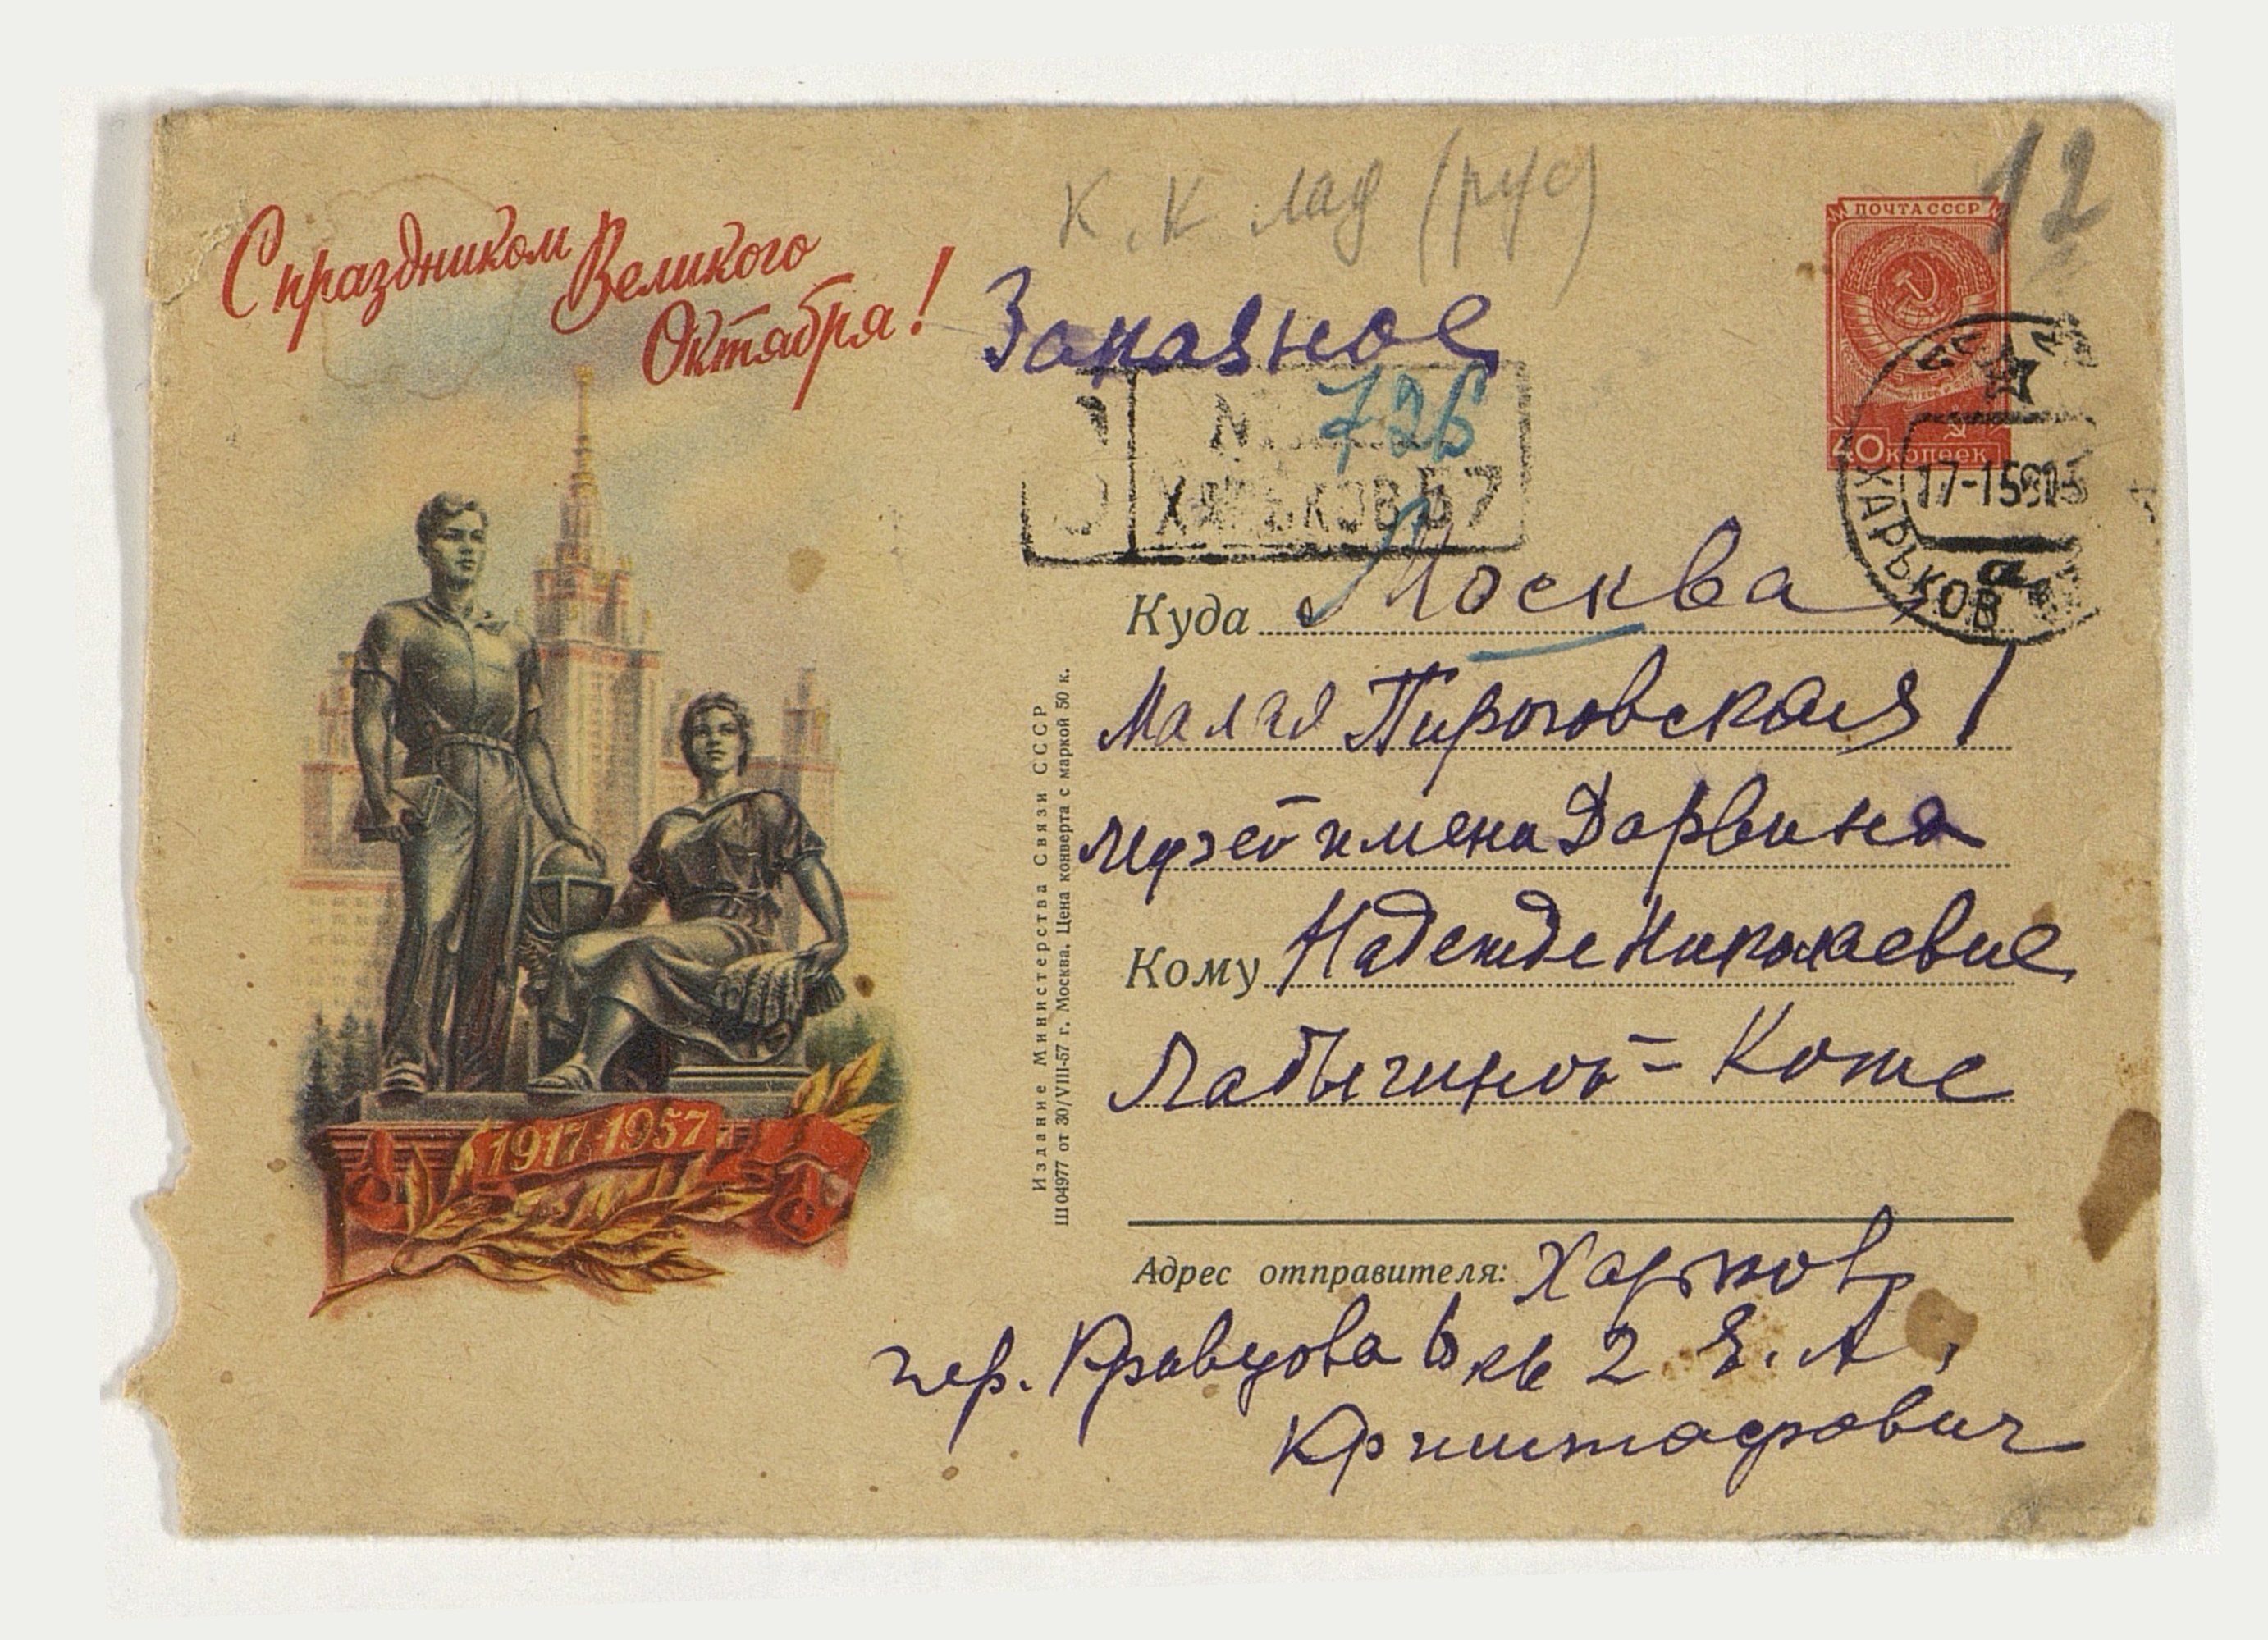 С праздником Великого
Октября!
К. К Лад (рус)
12
Заказное
ПОЧТА СССР
40 копеек
№ 726
ХАРЬКОВ 57
ХАРЬКОВ
17-1 58
Куда Москва
Малая Пироговская 1
музей имена Дарвина
Кому Надежде Николаевне
Ладыгиной-Котс
1917-1957
Издание Министерства Связи СССР
Ш04977 от 30/VIII-57 г. Москва. Цена конверта с маркой 50 к.
Адрес отправителя: Харьков
пер. Кравцова 6 кв 2 Е. А.
Криштафович